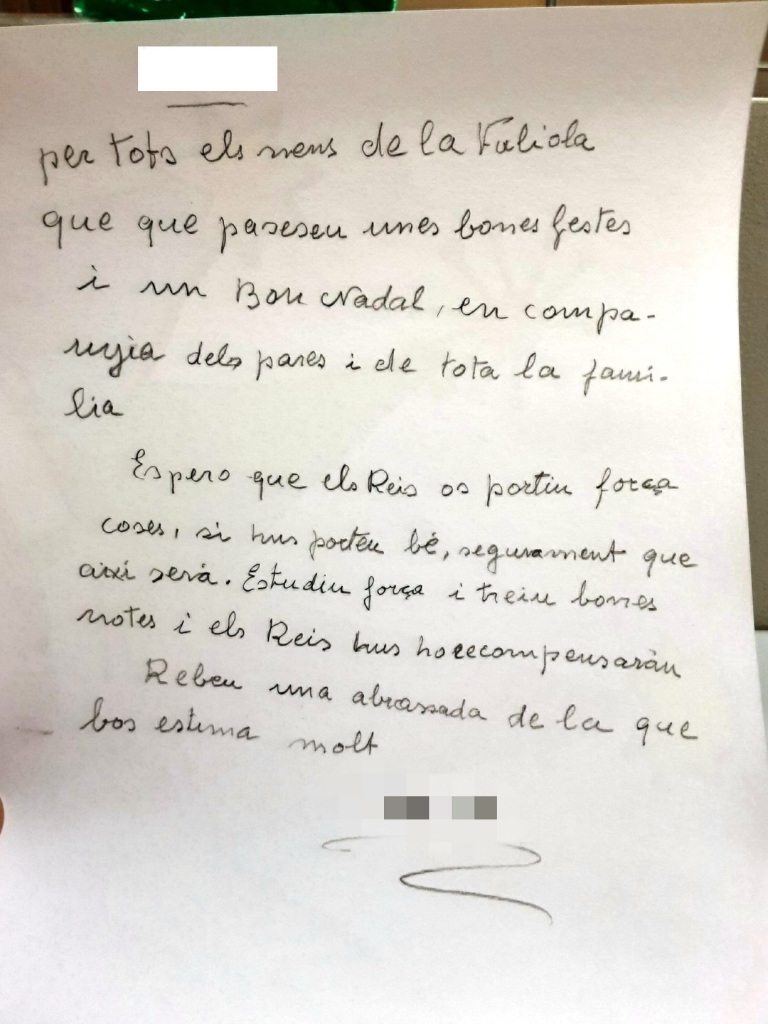 per tots els nens de la Fuliola
que que paseseu unes bones festes
i un Bon Nadal, en compa-
nyia dels pares i de tota la fami-
lia
Espero que els Reis os portin força
coses, si hus porteu bé, segurament que
així serà. Estudiu força i treiu bones
notes i els Reis hus horecompensaràn
Rebeu una abrassada de la que
bos estima molt